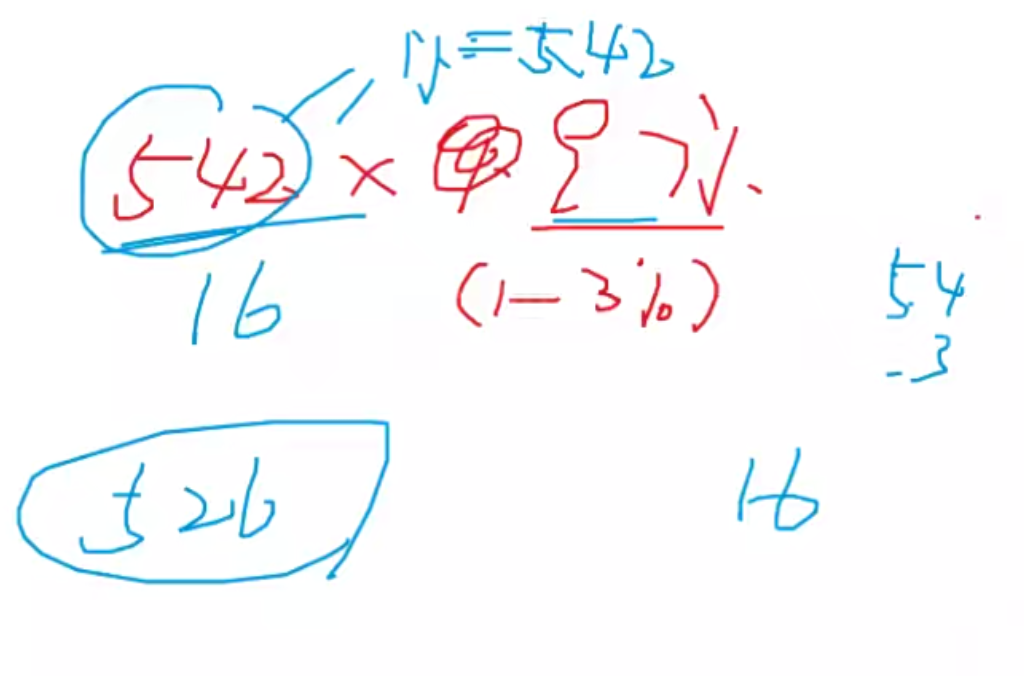 1y=542
542 × 97%.
16 (1-3%) 54
-3
526 16